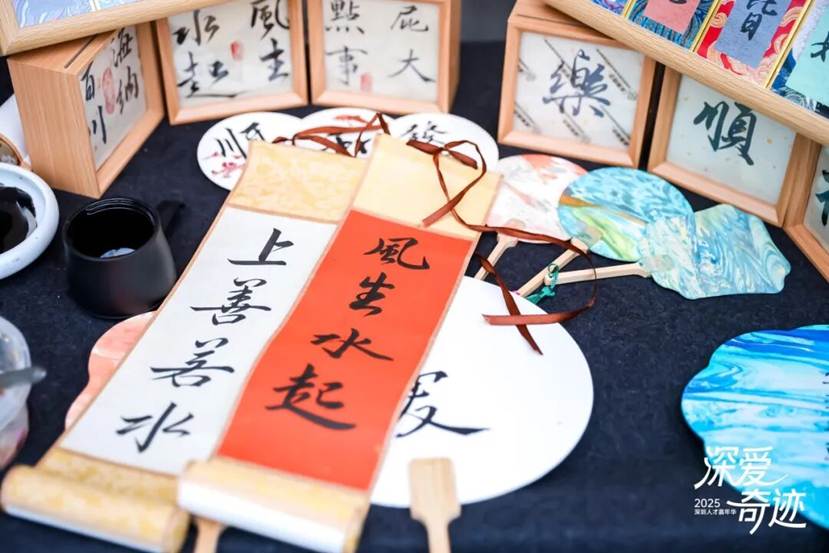 海納
百川
風生
水起
屁大
點事
樂
順
順
上善若水
風生水起
深爱
奇迹
2025
深圳人才嘉年华